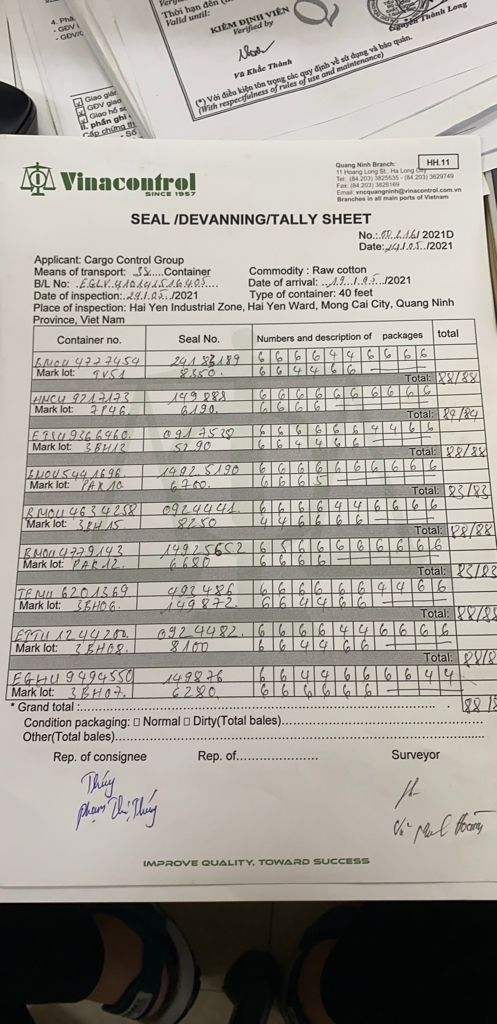 Thời hạn đến
Valid until:
KIỂM ĐỊNH VIÊN
Verified by
Vũ Khắc Thành
Nguyễn Thành Long
(*) Với điều kiện tôn trọng các quy định về sử dụng và bảo quản.
(With respectfulness of rules of use and maintenance)
4. Phâ
- GDV
- GDV/C
Giao giấ
GDV giao
Giao hồ sơ
II. phần ghi
Cấp chứng th
- Số
Vinacontrol
SINCE 1957
Quang Ninh Branch:
HH.11
11 Hoang Long St., Ha Long City
Tel: (84.203) 3825535 - (84.203) 3629749
Fax: (84.203) 3826169
Email: vncquangninh@vinacontrol.com.vn
Branches in all main ports of Vietnam
SEAL /DEVANNING/TALLY SHEET
No.: 2021D
Date: 24/.05./2021
Applicant: Cargo Control Group
Means of transport: Container
Commodity : Raw cotton
B/L No: EGLV
Date of arrival: 19/.05./2021
Date of inspection: 24/.05./2021
Type of container: 40 feet
Place of inspection: Hai Yen Industrial Zone, Hai Yen Ward, Mong Cai City, Quang Ninh
Province, Viet Nam
Container no. Seal No. Numbers and description of packages total
BMOU 4727454 6 6 6 6 4 4 6 6 6 6
Mark lot: TVS1 8350. 6 6 4 4 6 6
Total: 88/88
149888 6 6 6 6 6 6 6 6 6 6
Mark lot: 7P46. 6190. 6 6 6 6
Total: 84/84
6 6 6 6 6 6 4 4 6 6
Mark lot: 3BH12 6 6 4 4 6 6
Total: 88/88
14925190 6 6 6 6 6 6 6 6 6 6
Mark lot: PAK10 6700. 6 6 6 5
Total: 83/83
BMOU 4634258 0924441. 6 6 6 6 4 4 6 6 6 6
Mark lot: 3BH15 8250 4 4 6 6 6 6
Total: 88/88
BMOU 4779143 14925652 6 5 6 6 6 6 6 6 6 6
Mark lot: PAK12. 6680 6 6 6 6
Total: 83/83
TEMU 6201369 492486 6 6 6 6 6 6 4 4 6 6
Mark lot: 3BH06. 149872. 6 6 4 4 6 6
Total: 88/88
1244200. 0924482. 6 6 6 6 4 4 6 6 6 6
Mark lot: 3BH08. 8100 6 6 4 4 6 6
Total: 88/8
EGHU 9494550 149876 6 6 4 4 6 6 6 6 4 4
Mark lot: 3BH07. 6280 6 6 6 6 6 6
* Grand total : 88/8
Condition packaging: □ Normal □ Dirty(Total bales)
Other(Total bales)
Rep. of consignee Rep. of Surveyor
Thúy
Phạm Thị Thúy
IMPROVE QUALITY, TOWARD SUCCESS